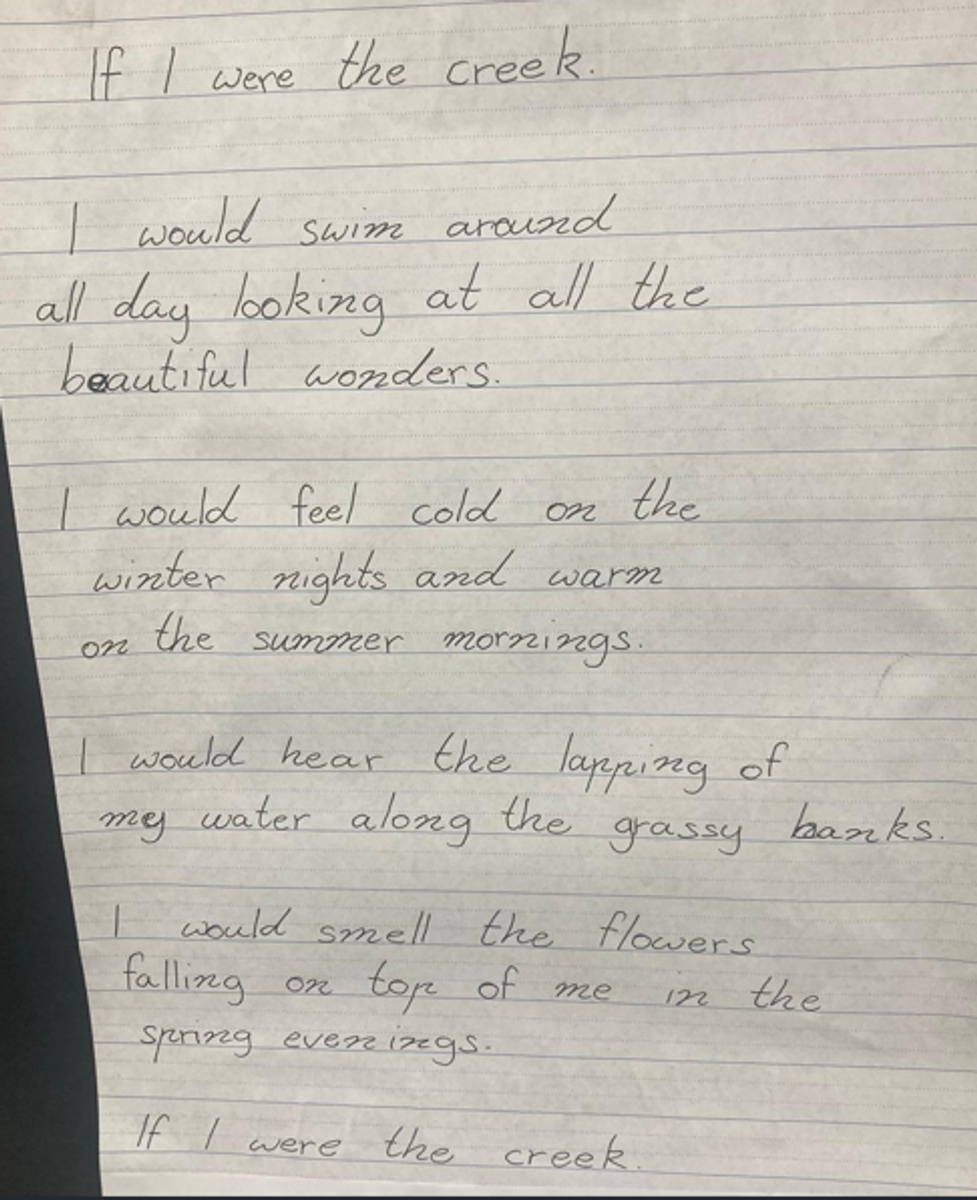 If I were the creek.
I would swim around
all day looking at all the
beautiful wonders.
I would feel cold on the
winter nights and warm
on the summer mornings.
I would hear the lapping of
my water along the grassy banks.
I would smell the flowers
falling on top of me in the
spring evenings.
If I were the creek.